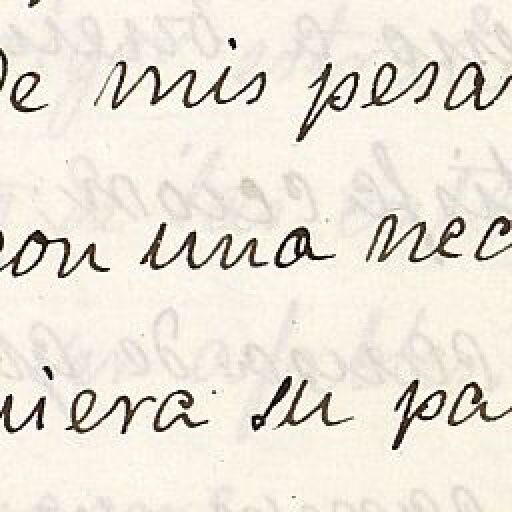 De mis pesa
con una nec
uiera su pa